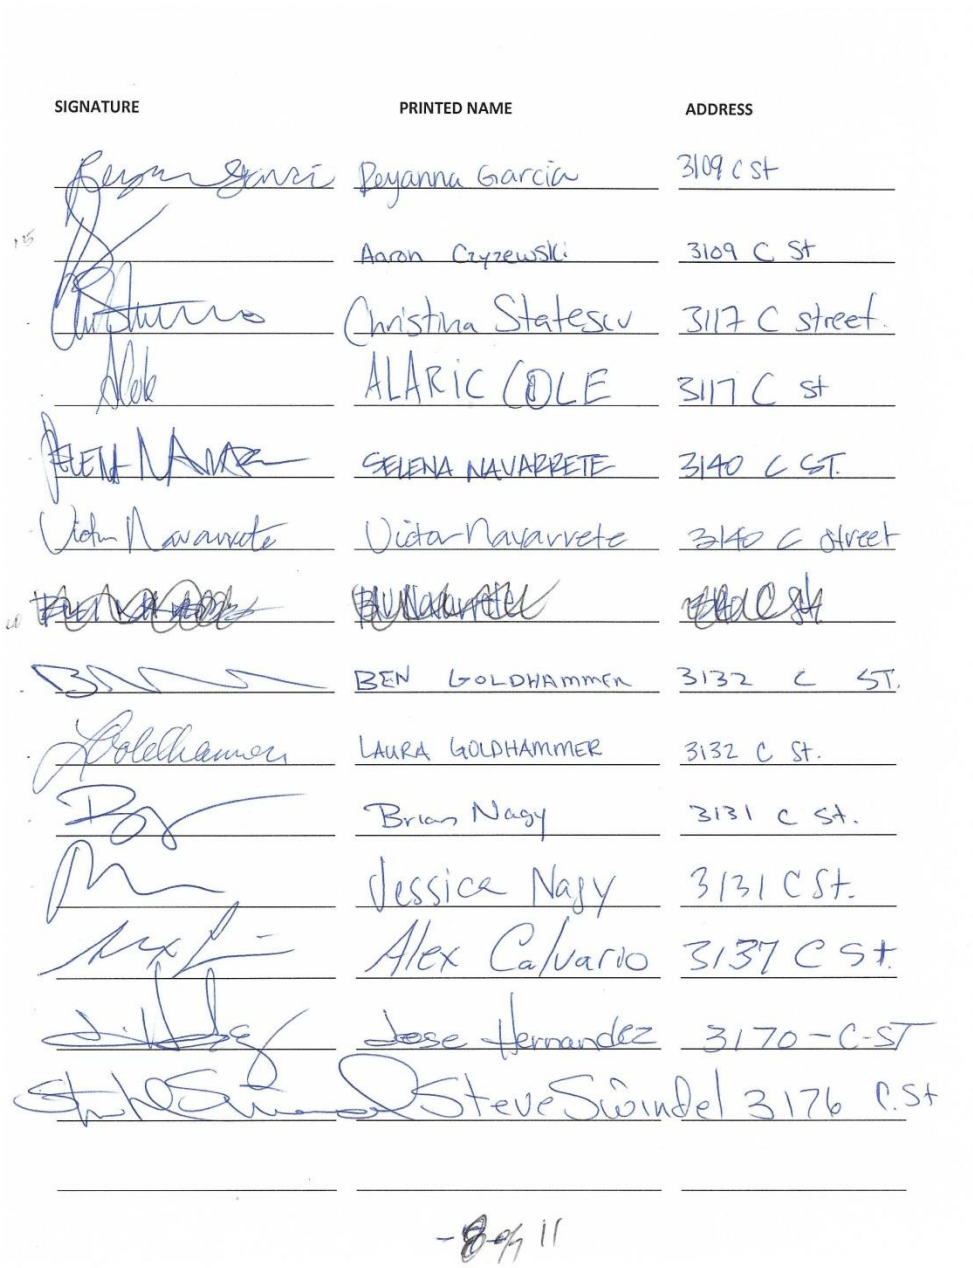 SIGNATURE PRINTED NAME ADDRESS
Reyanna Garcia 3109 C St
Aaron Czyzewski 3109 C St
Christina Statescu 3117 C street.
ALARIC COLE 3117 C St
SELENA NAVARRETE 3140 C ST.
Victor Navarrete Victor Navarrete 3140 C street
BEN GOLDHAMMER 3132 C ST.
LGoldhammer LAURA GOLDHAMMER 3132 C St.
Brian Nagy 3131 C St.
Jessica Nagy 3131 C St.
Alex Calvario 3137 C St.
Jose Hernandez 3170-C-ST
Steve Swindel 3176 C.St
-8 of 11